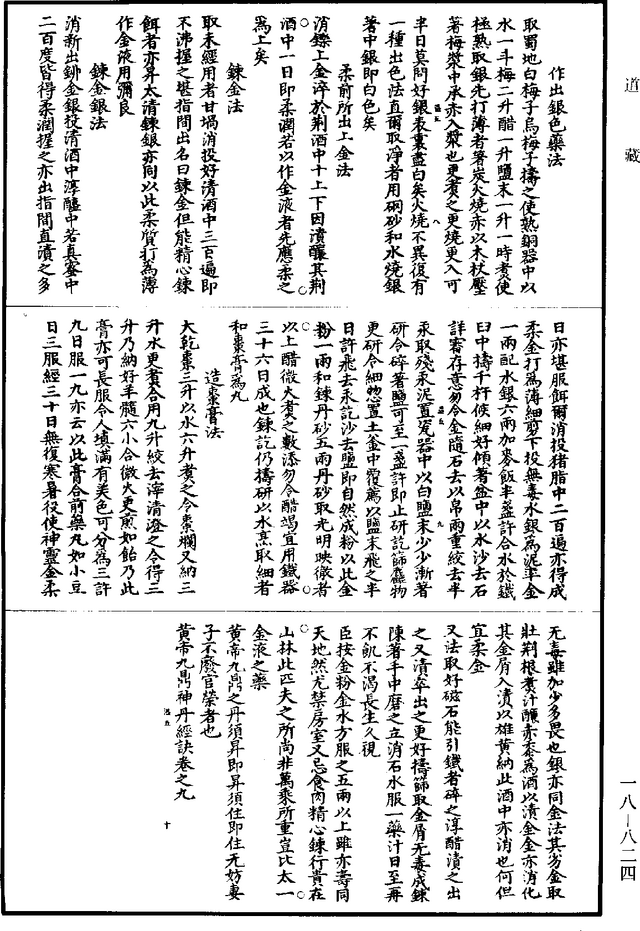 道藏
作出銀色藥法
取蜀地白梅子烏梅子擣之使熟銅器中以
水一斗梅二升醋一升鹽末一升一時煑使
極熟取銀先打薄者箸炭火燒赤以木杖壓
著梅漿中承赤入漿也更煑之更燒更入可
半日莫問好銀表裏盡白矣火燒不異復有
一種出色法直爾取淨者用硇砂和水燒銀
著中銀即白色矣
柔前所出上金法
消鑠上金淬於荆酒中十上下因漬釀其荆
酒中一日即柔潤若以作金液者先應柔之
爲上矣
鍊金法
取未經用者甘堝消投好清酒中三百遍即
不沸握之堪指間出名曰鍊金但能精心鍊
餌者亦昇太清鍊銀亦同以此柔質打爲薄
作金液用彌良
鍊金銀法
消新出鉚金銀投清酒中淳醯中若真蜜中
二百度皆得柔潤握之亦出指間直漬之多
日亦堪服餌爾消投猪脂中二百遍亦得成
柔金打爲薄細剪下投無毒水銀爲泥率金
一兩配水銀六兩加麥飯半盞許合水於鐵
臼中擣千杵候細好傾著盆中以水沙去石
詳審存意勿令金隨石去以帛兩重絞去半
汞取殘汞泥置瓷器中以白鹽末少少漸著
研令碎著鹽可至一盞許即止研訖篩麤物
更研令細惣置土釜中覆薦以鹽末飛之半
日許飛去汞訖沙去鹽即自然成粉以此金
粉一兩和鍊丹砂五兩丹砂取光明映徹者
以上醋微火煑之數添勿令醋竭宜用鐵器
三十六日成也鍊訖仍擣研以水烹取細者
和棗膏爲丸
造棗膏法
大乾棗三升以水六升煑之令棗爛又納三
升水更煑合用九升絞去滓清澄之令得三
升乃納好羊髓六小合微火更煎如飴乃此
膏亦可長服令人塡滿有美色可分爲三許
九日服一九亦云以此膏合前藥丸如小豆
日三服經三十日無復寒暑役使神靈金柔
无毒雖加少多畏也銀亦同金法其劣金取
壯荆根煑汁釀赤黍爲酒以漬金金亦消化
其金屑入漬以雄黄納此酒中亦消也何但
宜柔金
又法取好磁石能引鐵者碎之淳醋漬之出
之又漬卒出之更好擣篩取金屑无毒成鍊
陳著手中磨之立消石水服一藥汁日至再
不飢不渴長生久視
臣按金粉金水方服之五兩以上雖亦壽同
天地然尤禁房室又忌食肉精心鍊行貴在
山林此匹夫之所尚非萬乘所重豈比太一
金液之藥
黄帝九鼎之丹須昇即昇須住即住无妨妻
子不廢官榮者也
黄帝九鼎神丹經訣卷之九
十
一八-八二四